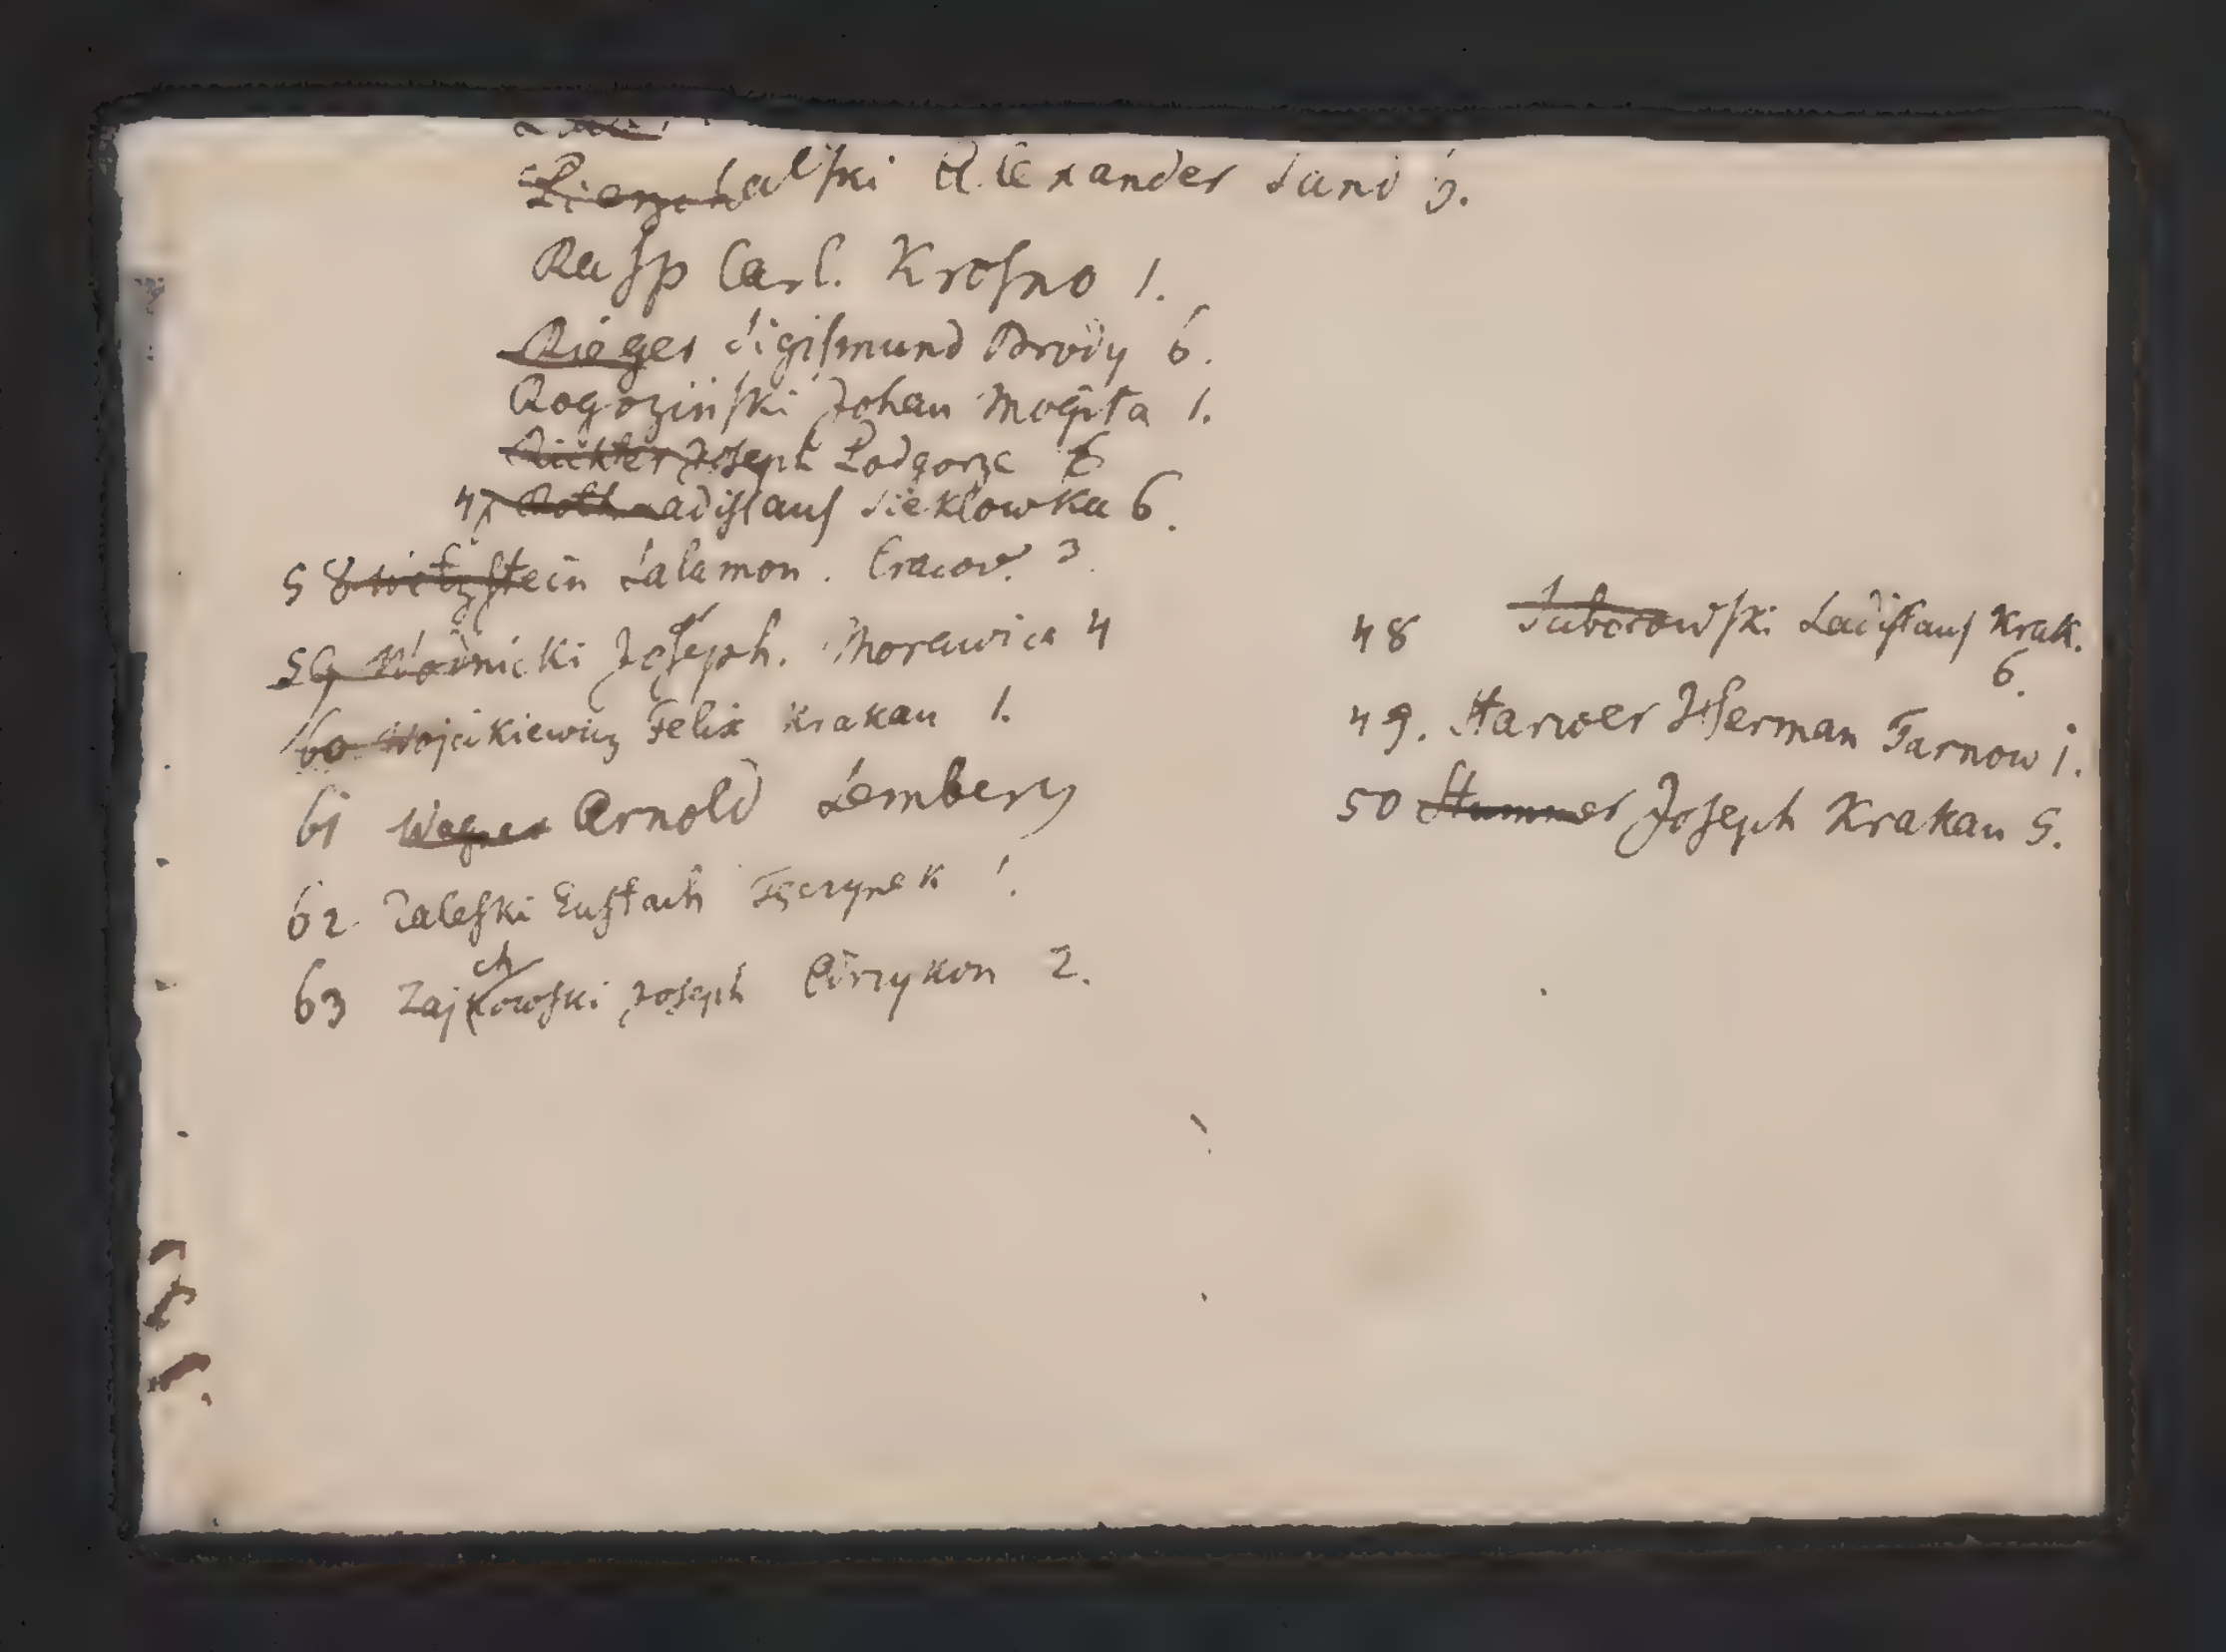 Pierzchalski Alexander Sand 3.
Rasp Carl. Krosno 1.
Rieger Sigismund Brody 6.
Rogoziński Johan Mogiła 1.
Richter Joseph Podgorze 6
47 Roth Ladislaus Sieklowka 6.
58 stein Salamon. Cracov. 3.
59 Woźnicki Joseph. Morawica 4
60 Wojcikiewicz Felix Krakau 1.
61 Wagner Arnold Lemberg
62. Zaleski Eustach Tęczynek 1.
ch
63 Zajkowski Joseph Odrzykon 2.
48 Ladislaus Krak.
6.
49. Herman Tarnow 1.
50 Stummer Joseph Krakau 5.